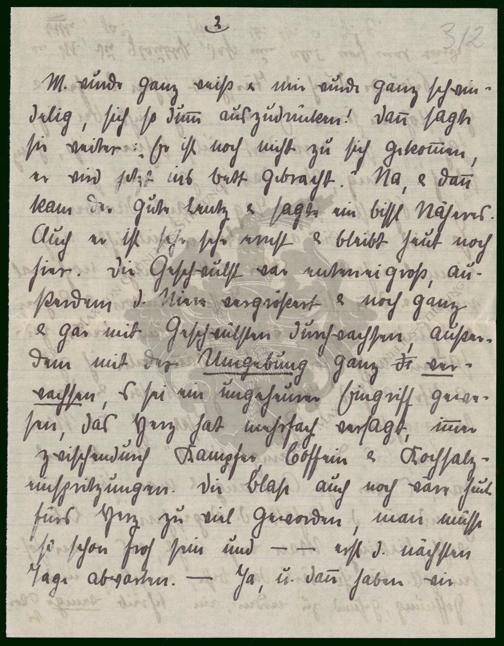 2
312
M. wurde ganz weiß & mir wurde ganz schwin-
delig, sich so dumm auszudrücken! Dann sagte
sie weiter: "Er ist noch nicht zu sich gekommen,
er wird jetzt ins Bett gebracht." Na, & dann
kam der gute Lentz & sagte ein bissl Näheres.
Auch er ist sehr sehr ernst & bleibt heut noch
hier. Die Geschwulst war enteneigroß, au-
ßerdem d. Niere vergrößert & noch ganz
& gar mit Geschwülsten durchwachsen, außer-
dem mit der Umgebung ganz ver-
wachsen, es sei ein ungeheurer Eingriff gewe-
sen, das Herz hat mehrfach versagt, immer
zwischendurch Kampfer Coffein & Kochsalz-
einspritzungen. Die Blase auch noch wäre heut
fürs Herz zu viel geworden, man müsse
so schon froh sein und — — erst d. nächsten
Tage abwarten. — Ja, u. dann haben wir